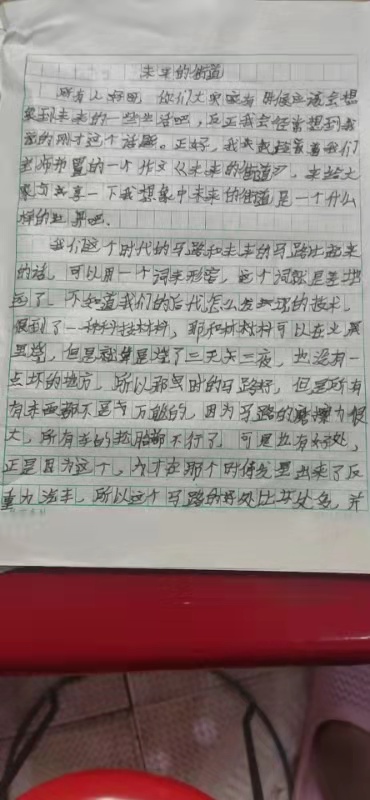 未来的街道
所有人好啊,你们大家应有时候应该会想
象到未来的一些生活吧,反正我会经常想到我
说的刚才这个话题。正好,我就趁着我们
老师布置的一个作文《未来的街道》,来给大
家分享一下我想象中未来的街道是一个什么
样的世界吧。
我们这个时代的马路和未来的马路比起来
的话,可以用一个词来形容,这个词就是差地
远了,不知道我们的后代怎么发现的技术,
搜到了一种科技材料,那种材料可以在火
里烧,但是就算是烧了三天三夜,也没有一
点坏的地方,所以那是时的马路好,但是所有
有东西都不是万能的,因为马路的磨擦力很
大,所有车的轮胎都不行了,可是也有好处,
正是因为这个,才在那个时候发显出来了反
重力汽车,所以这个马路的好处比坏处多,并